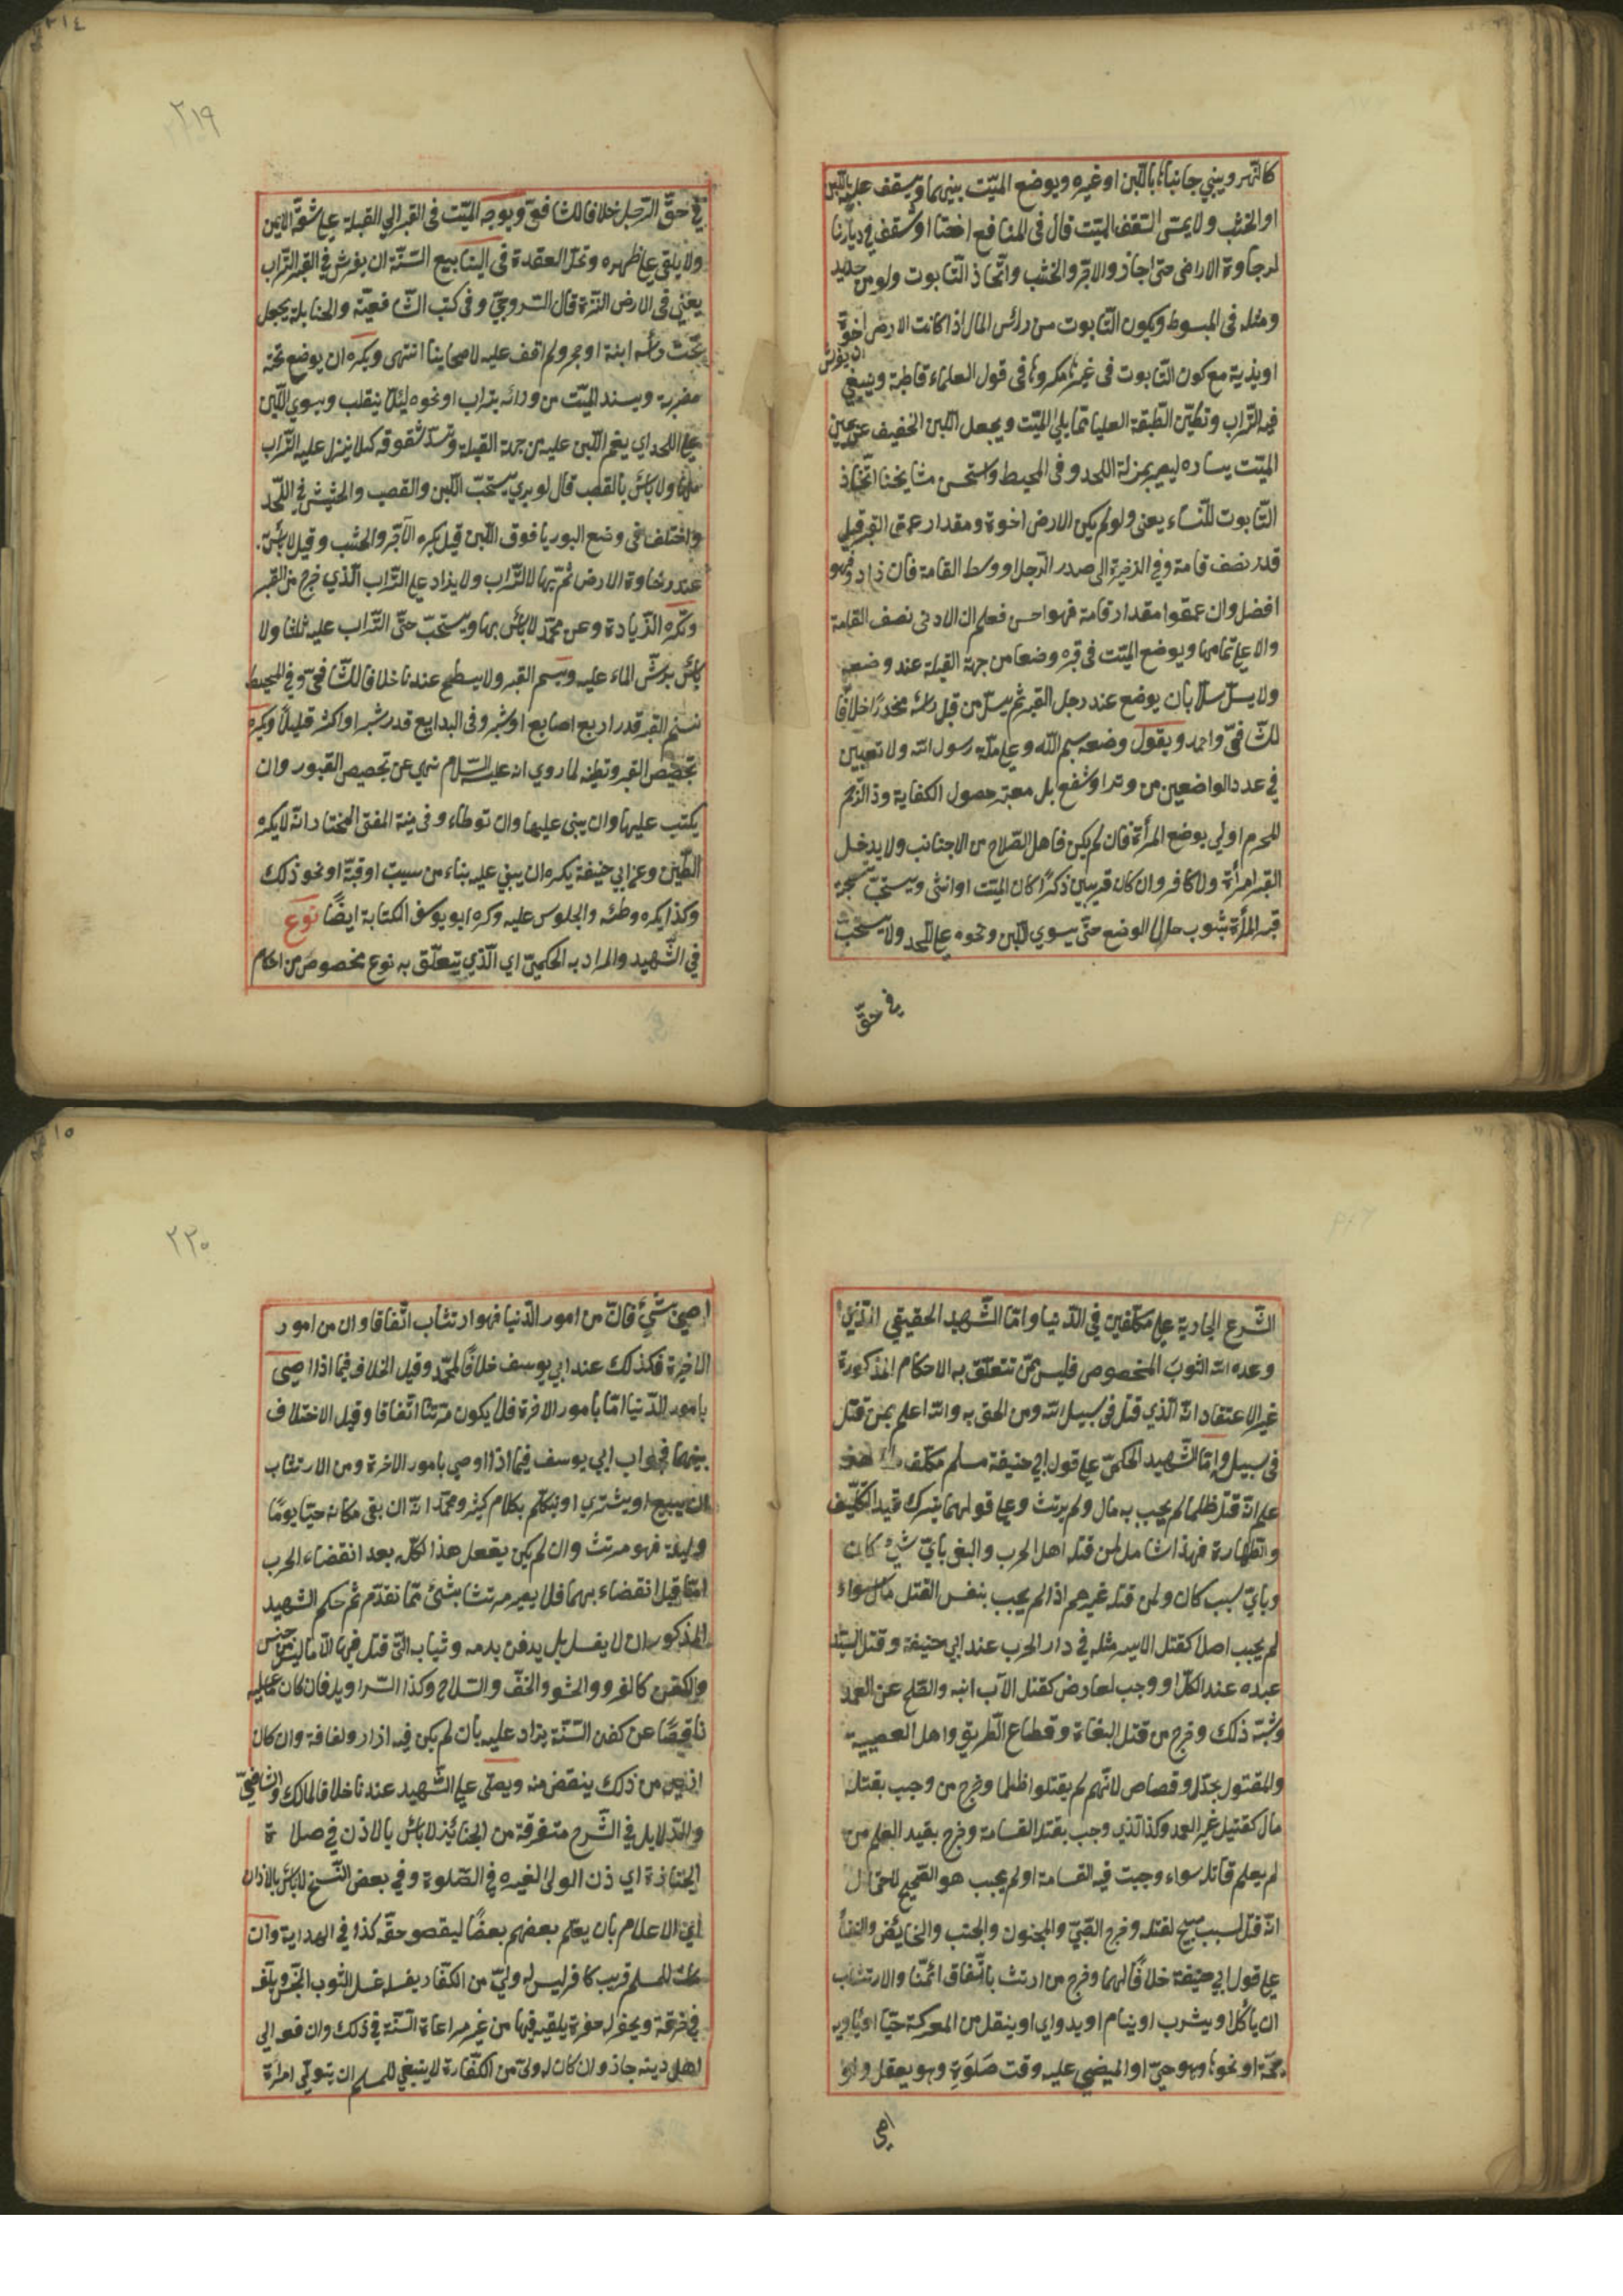 كالنهر ويبني جانباه باللبن او غيره ويوضع الميّت بينهما ويسقف عليه باللبن
او الخشب ولا يمسّ السّقف الميّت قال في المنافع اختاروا الشّق في ديارنا
لرخاوة الاراضي حتى اجازوا الاجرّ والخشب واتّخاذ التّابوت ولو من حديد
ومثله في المبسوط ويكون التّابوت من رأس المال اذا كانت الارض رخوة
او نديّة مع كون التّابوت في غيرها مكروها في قول العلماء قاطبة وينبغي ان يفرش
فيه التّراب وتطيّن الطّبقة العليا ممّا يلي الميّت ويجعل اللبن الخفيف عن يمين
الميّت ويساره ليصير بمنزلة اللحد وفي المحيط واستحسن مشايخنا اتّخاذ
التّابوت للنّساء يعني ولو لم يكن الارض رخوة ومقدار عمق القبر قيل
قدر نصف قامة وفي الذخيرة الى صدر الرّجل او وسط القامة فان زادوا فهو
افضل وان عمقوا مقدار قامة فهو احسن فعلم ان الادنى نصف القامة
والاعلى تمامها ويوضع الميّت في قبره وضعا من جهة القبلة عند وضعه
ولا يسلّ سلّا بان يوضع عند رجل القبر ثم يسلّ من قبل رأسه منحدرًا خلافا
للشّافعيّ واحمد ويقول واضعه بسم الله وعلى ملّة رسول الله ولا تعيين
في عدد الواضعين من وتر او شفع بل معتبر حصول الكفاية وذو الرّحم
المحرم اولى بوضع المرأة فان لم يكن فاهل الصّلاح من الاجانب ولا يدخل
القبر امرأة ولا كافر وان كان قريبين ذكرًا كان الميّت او انثى ويستحبّ تسجية
قبر المرأة بثوب حال الوضع حتّى يسوي اللبن ونحوه على اللحد ولا يستحبّ
في حقّ
٢١٩
في حقّ الرّجل خلافا للشّافعيّ ويوجّه الميّت في القبر الى القبلة على شقّه الايمن
ولا يلقى على ظهره وتحلّ العقدة في الينابيع السّنّة ان يفرش في القبر التّراب
يعني في الارض النّزة قال السروجيّ وفي كتب الشّافعيّة والحنابلة يجعل
تحت رأسه لبنة او حجر ولم اقف عليه لاصحابنا انتهى ويكره ان يوضع تحته
مضربة ويسند الميّت من ورائه بتراب او نحوه لئلّا ينقلب ويسوي اللّبن
على اللحد اي يقم اللّبن عليه من جهة القبلة وتسدّ شقوقه كيلا ينزل عليه التّراب
منها ولا بأس بالقصب قال لو يري يستحبّ اللّبن والقصب والحشيش في اللّحد
واختلف في وضع البوريا فوق اللّبن قيل يكره الآجرّ والخشب وقيل لا بأس
عند رخاوة الارض ثمّ يهال التّراب ولا يزاد على التّراب الّذي خرج من القبر
وتكره الزّيادة وعن محمّد لا بأس بها ويستحبّ حثّى التّراب عليه ثلثا ولا
بأس برشّ الماء عليه ويسنم القبر ولا يسطح عندنا خلافا للشّافعيّ وفي المحيط
نسنم القبر قدر اربع اصابع او شبر وفي البدايع قدر شبر او اكثر قليلًا ويكره
تجصيص القبر وتطينه لما روي انه عليه السّلام نهى عن تجصيص القبور وان
يكتب عليها وان يبنى عليها وان توطاء وفي منية المفتى المختار انّه لا يكره
الطّين وعن ابي حنيفة يكره ان يبنى عليه بناء من بيت او قبّة او نحو ذلك
وكذا يكره وطئه والجلوس عليه وكره ابو يوسف الكتابة ايضًا نوع
في الشّهيد والمراد به الحكميّ اي الّذي يتعلّق به نوع مخصوص من احكام
الشّرع الجارية على مكلّفين في الدّنيا وامّا الشّهيد الحقيقي الّذي
وعده الله الثوب المخصوص فليس ممّن تتعلّق به الاحكام المذكورة
غير الاعتقاد انّه الّذي قتل في سبيل الله ومن الحق به والله اعلم بمن قتل
في سبيل وامّا الشّهيد الحكميّ على قول ابي حنيفة مسلم مكلّف
علم انّه قتل ظلما لم يجب به مال ولم يرتث وعلى قولهما يترك قيد التّكليف
والطّهارة فهذا شامل لمن قتله اهل الحرب والبغي بايّ شئ كان
وبايّ سبب كان ولمن قتله غيرهم اذا لم يجب بنفس القتل مال سواء
لم يجب اصلا كقتل الاسير مثله في دار الحرب عند ابي حنيفة وقتل السيّد
عبده عند الكلّ او وجب لعارض كقتل الآب ابنه والصّلح عن العمد
وشبه ذلك وخرج من قتل البغاة وقطاع الطّريق واهل العصبية
والمقتول بحدّ او قصاص لانّهم لم يقتلوا ظلما وخرج من وجب بقتله
مال كقتيل غير العمد وكذا الّذي وجب بقتله القسامة وخرج بقيد العلم من
لم يعلم قاتله سواء وجبت فيه القسامة او لم يجب هو الصّحيح لاحتمال
انّه قتل لسبب مبيح لقتله وخرج الصّبيّ والمجنون والجنب والحائض والنفسا
على قول ابي حنيفة خلافًا لهما وخرج من ارتث باتّفاق ائمّتنا والارتثاب
ان يأكل او يشرب او ينام او يدواي او ينقل من المعركة حيّا او ياويه
خيمة او نحوها وهو حيّ او لم يمضي عليه وقت صلوة وهو يعقل ولو
اوصى
٢٢٠
اوصى بشيء فان من امور الدّنيا فهو ارتثاب اتّفاقا وان من امور
الاخرة فكذلك عند ابي يوسف خلافًا لمحمّد وقيل الخلاف فيما اذا اوصى
بامور الدّنيا امّا بامور الاخرة فلا يكون مرتثا اتّفاقا وقيل الاختلاف
بينهما فجواب ابي يوسف فيما اذا اوصى بامور الاخرة ومن الارتثاب
ان يبيع او يشتري او يتكلّم بكلام كثير ومحمّد انّه ان بقى مكانه حيّا يومًا
وليلة فهو مرتث وان لم يكن يفعل هذا كلّه بعد انقضاء الحرب
امّا قبل انقضاء بهما فلا يصير مرتثا بشئ ممّا تقدّم ثم حكم الشهيد
المذكور ان لا يغسل بل يدفن بدمه وثيابه الّتي قتل فيها الّا ما ليس من جنس
والكفن كالفرو والحشو والخفّ والسّلاح وكذا السّراويل فان كان عليه
ناقصًا عن كفن السّنّة يزاد عليه بان لم يكن فيه ازار ولفافة وان كان
ازيد من ذلك ينقص منه ويصلّى على الشّهيد عندنا خلافا لمالك والشّافعيّ
والدّلايل في الشّرح متفرقة من الجنائز لا بأس بالاذن في صلاة
الجنازة اي اذن الولى لغيره في الصّلوة وفي بعض النّسخ لا بأس بالاذان
اي الاعلام بان يعلم بعضهم بعضًا ليقضو حقّه كذا في الهداية وان
مات للمسلم قريب كافر ليس له وليّ من الكفّار يغسله غسل الثوب النّجس ويلفه
في خرقة ويحفر له حفرة يلقيه فيها من غير مراعاة السّنّة في ذلك وان دفعه الى
اهل دينه جاز وان كان له وليّ من الكفّارة لا ينبغي للمسلم ان يتولّى امره